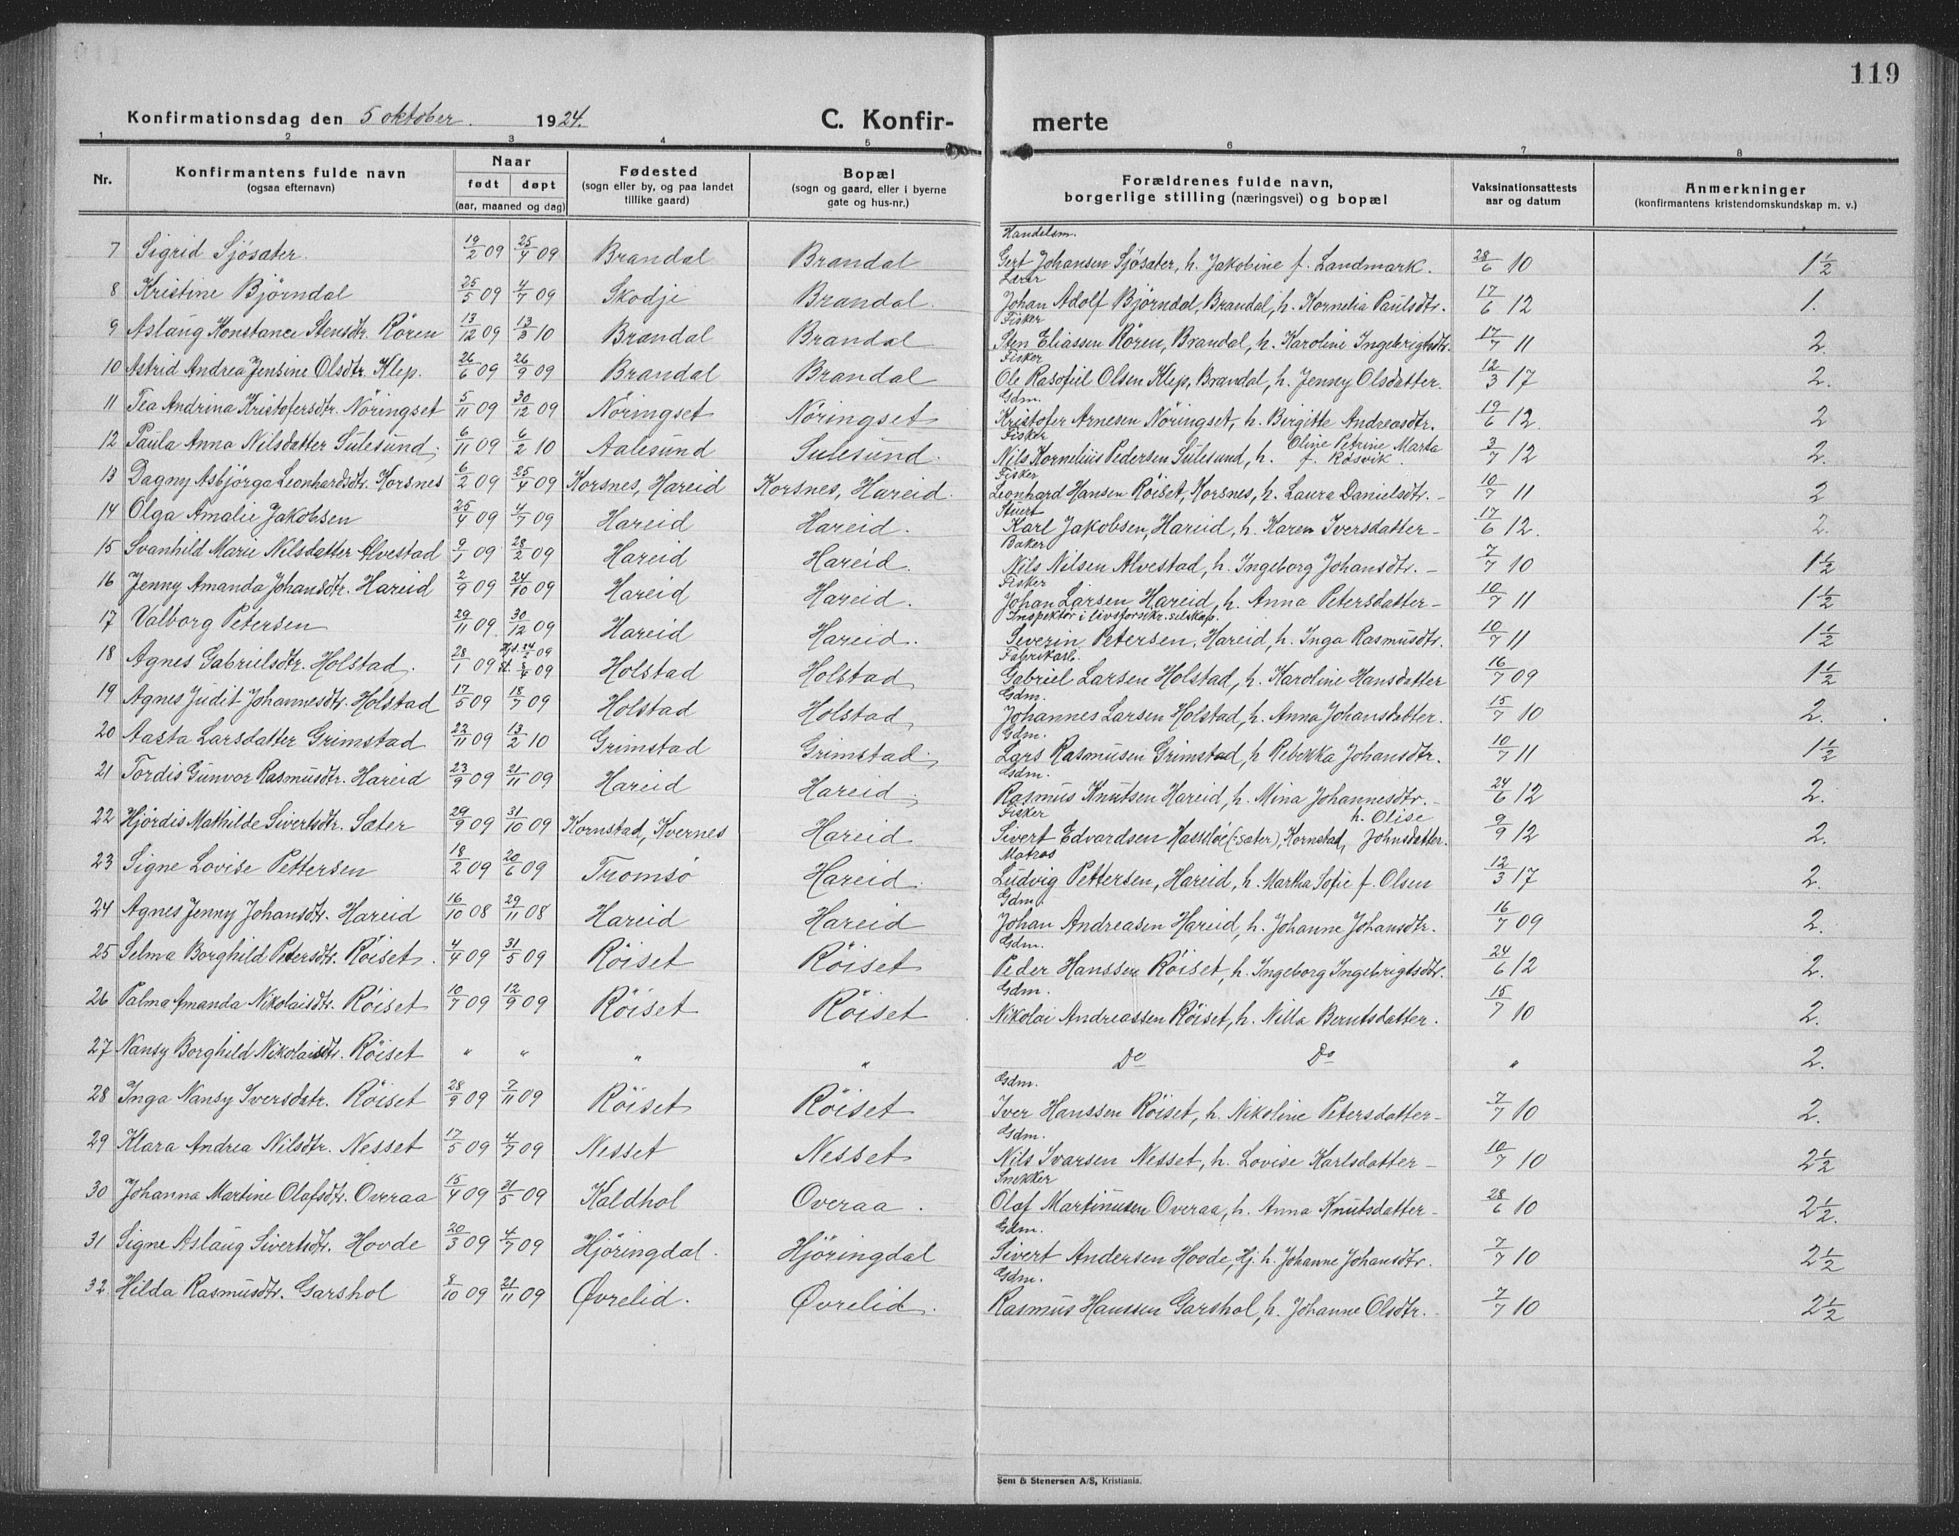 119
Konfirmationsdag den 5 oktober 1924.
C. Konfir-
merte
1 2 3 4 5 6 7 8
Nr.
Konfirmantens fulde navn
(ogsaa efternavn)
Naar
født døpt
(aar, maaned og dag)
Fødested
(sogn eller by, og paa landet
tillike gaard)
Bopæl
(sogn og gaard, eller i byerne
gate og hus-nr.)
Forældrenes fulde navn,
borgerlige stilling (næringsvei) og bopæl
Vaksinationsattests
aar og datum
Anmerkninger
(konfirmantens kristendomskundskap m. v.)
Handelsm.
7 Sigrid Sjösater. 19/2 09 25/4 09 Brandal Brandal Gert Johansen Sjösater, h. Jakobine f. Landmark. 28/6 10 1 1/2
Lærer
8 Kristine Björndal 25/5 09 4/7 09 Skodje Brandal. Johan Adolf Björndal, Brandal, h. Kornelia Paulsdtr. 17/6 12 1.
Fisker
9 Aslaug Konstance Stensdtr. Rören 13/12 09 13/3 10 Brandal Brandal Sten Eliassen Rören, Brandal, h. Karoline Ingebrigtsdtr. 17/7 11 2.
Fisker
10 Astrid Andrea Jensine Olsdtr. Klep. 26/6 09 26/9 09 Brandal Brandal Ole Rasofiel Olsen Klep, Brandal, h. Jenny Olsdatter. 12/3 17 2.
Gdm.
11 Tea Andrina Kristofersdtr. Nöringset 5/11 09 30/12 09 Nöringset Nöringset Kristofer Arnesen Nöringset, h. Birgitte Andreasdtr. 19/6 12. 2
Fisker Oline Petrine Marta
12 Paula Anna Nilsdatter Sulesund. 6/11 09 6/2 10 Aalesund Sulesund. Nils Kornelius Pedersen Sulesund, h. f. Rösvik. 3/7 12 2.
Fisker
13 Dagny Asbjörga Leonhardsdtr. Korsnes 6/2 09 25/4 09 Korsnes, Hareid Korsnes, Hareid. Leonhard Hansen Röiset, Korsnes, h. Laura Danielsdtr. 10/7 11 2
Stuert
14 Olga Amalie Jakobsen 25/4 09 4/7 09 Hareid Hareid. Karl Jakobsen, Hareid, h. Karen Iversdatter 17/6 12. 2.
Baker
15 Svanhild Marie Nilsdatter Alvestad 9/1 09 28/2 09 Hareid Hareid. Nils Nilsen Alvestad, h. Ingeborg Johansdtr. 7/7 10 1 1/2
Fisker
16 Jenny Amanda Johansdtr. Hareid 2/9 09 24/10 09 Hareid Hareid. Johan Larsen Hareid, h. Anna Petersdatter 10/7 11 1 1/2
Inspektör i livsforsikr.selskap.
17 Valborg Petersen 29/11 09. 30/12 09 Hareid Hareid. Severin Petersen, Hareid, h. Inga Rasmusdtr. 10/7 11 1 1/2
Fabrikarb.
18 Agnes Gabrielsdtr. Holstad. 28/1 09 Holstad Holstad Gabriel Larsen Holstad, h. Karoline Hansdatter 16/7 09 1 1/2
Gdm.
19 Agnes Judit Johannesdtr. Holstad 17/5 09 18/7 09 Holstad Holstad Johannes Larsen Holstad, h. Anna Johansdatter. 15/7 10 2.
Gdm.
20 Aasta Larsdatter Grimstad 22/11 09 13/2 10 Grimstad Grimstad Lars Rasmusen Grimstad, h. Rebekka Johansdtr. 10/7 11 1 1/2
Gdm.
21 Tordis Gunvor Rasmusdtr. Hareid 23/9 09 21/11 09 Hareid Hareid. Rasmus Knutsen Hareid, h. Mina Johannesdtr. 24/6 12 2.
Fisker h. Olise
22 Hjördis Mathilde Sivertsdtr. Sæter 29/9 09 31/10 09 Kornstad, Kvernes Hareid Sivert Edvardsen Hasslöe (: Sæter), Kornstad, Johnsdatter. 9/9 12 2.
Matros
23 Signe Lovise Pettersen 18/2 09 20/6 09 Tromsö Hareid. Ludvig Pettersen, Hareid, h. Martha Sofie f. Olsen 12/3 17 2.
Gdm.
24 Agnes Jenny Johansdtr. Hareid 16/10 08 29/11 08 Hareid Hareid Johan Andreasen Hareid, h. Johanne Johansdtr. 16/7 09 2.
Gdm.
25 Selma Borghild Petersdtr. Röiset. 4/4 09 31/5 09 Röiset Röiset Peder Hanssen Röiset, h. Ingeborg Ingebrigtsdtr. 24/6 12 2.
Gdm.
26 Palma Amanda Nikolaisdtr. Röiset 10/7 09 12/9 09 Röiset Röiset Nikolai Andreassen Röiset, h. Nilla Berntsdatter. 15/7 10 2.
27 Nansy Borghild Nikolaisdtr. Röiset " " " " Do Do " 2.
Gdm.
28 Inga Nansy Iversdatr. Röiset 28/9 09 7/11 09 Röiset Röiset Iver Hanssen Röiset, h. Nikoline Petersdatter 7/7 10 2.
Gdm.
29 Klara Andrea Nilsdtr. Nesset 17/5 09 4/7 09 Nesset Nesset Nils Ivarsen Nesset, h. Lovise Karlsdatter 10/7 10 2 1/2
Snekker
30 Johanna Martine Olafsdtr. Overaa 15/4 09 31/5 09 Kaldhol Overaa. Olaf Martinusen Overaa, h. Anna Knutsdatter 28/6 10 2 1/2.
Gdm.
31 Signe Aslaug Sivertsdtr. Hovde 20/3 09 4/7 09 Hjöringdal. Hjöringdal Sivert Andersen Hovde, Hj. h. Johanne Johansdtr. 7/7 10 2 1/2
Gdm.
32 Hilda Rasmusdtr. Garshol 8/10 09 21/11 09 Øvrelid. Øvrelid. Rasmus Hanssen Garshol, h. Johanne Olsdtr. 7/7 10 2 1/2
Sem & Stenersen A/S, Kristiania.